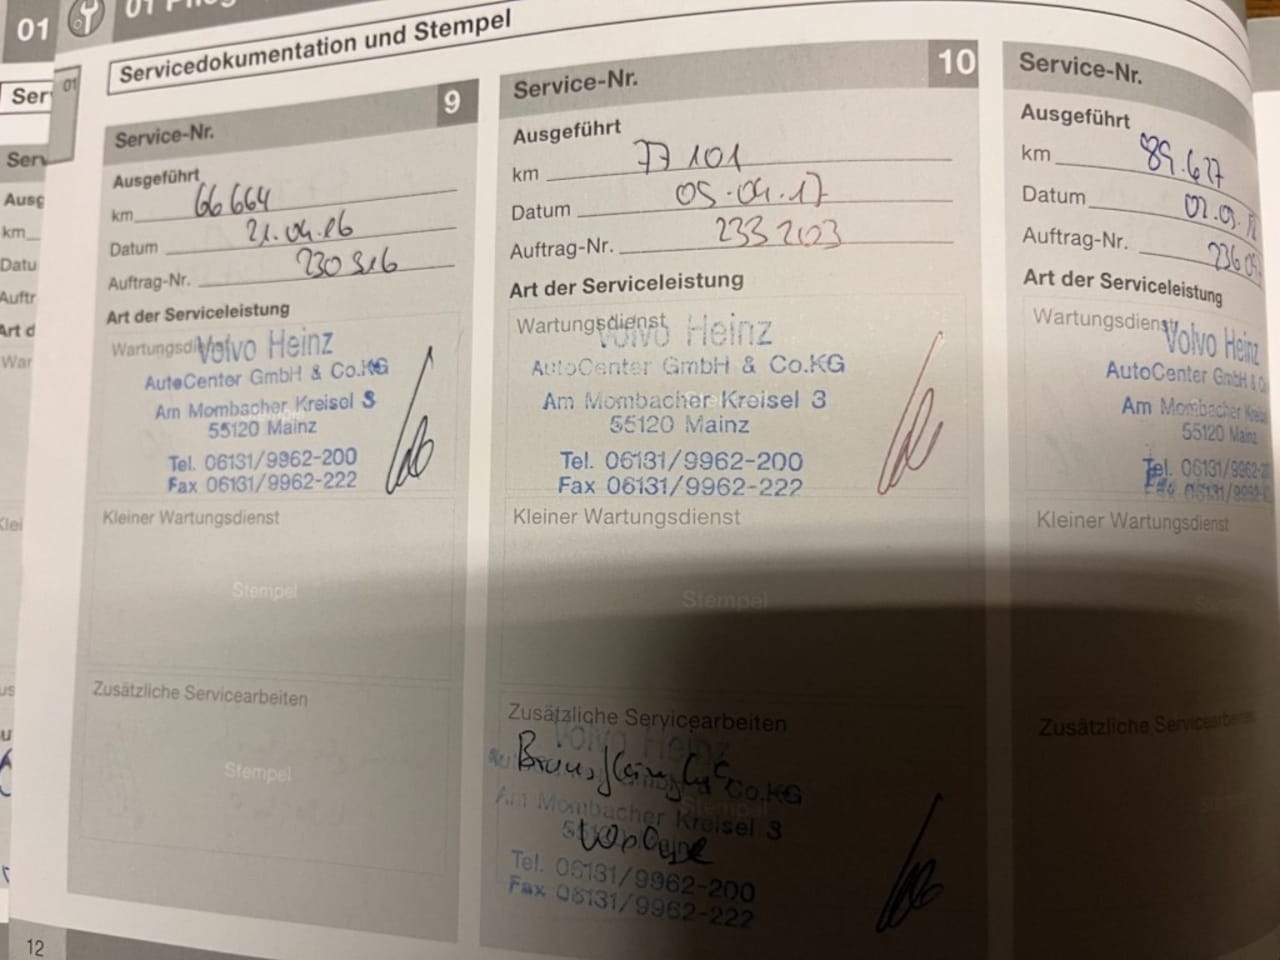 01
01
Servicedokumentation und Stempel
01
Service-Nr. 9
Ausgeführt
km 66 664
Datum 21.04.16
Auftrag-Nr. 230 316
Art der Serviceleistung
Wartungsdienst
Volvo Heinz
AutoCenter GmbH & Co.KG
Am Mombacher Kreisel 3
55120 Mainz
Tel. 06131/9962-200
Fax 06131/9962-222
Kleiner Wartungsdienst
Stempel
Zusätzliche Servicearbeiten
Stempel
12
Service-Nr. 10
Ausgeführt
km 77 101
Datum 05.04.17
Auftrag-Nr. 233 203
Art der Serviceleistung
Wartungsdienst
Volvo Heinz
AutoCenter GmbH & Co.KG
Am Mombacher Kreisel 3
55120 Mainz
Tel. 06131/9962-200
Fax 06131/9962-222
Kleiner Wartungsdienst
Stempel
Zusätzliche Servicearbeiten
Volvo Heinz
Co.KG
Am Mombacher Kreisel 3
Tel. 06131/9962-200
Fax 06131/9962-222
Service-Nr.
Ausgeführt
km 89.627
Datum 02.03.
Auftrag-Nr.
Art der Serviceleistung
Wartungsdienst
Volvo Heinz
AutoCenter GmbH &
Am Mombacher
55120 Mainz
Tel. 06131/9962-
Kleiner Wartungsdienst
Zusätzliche